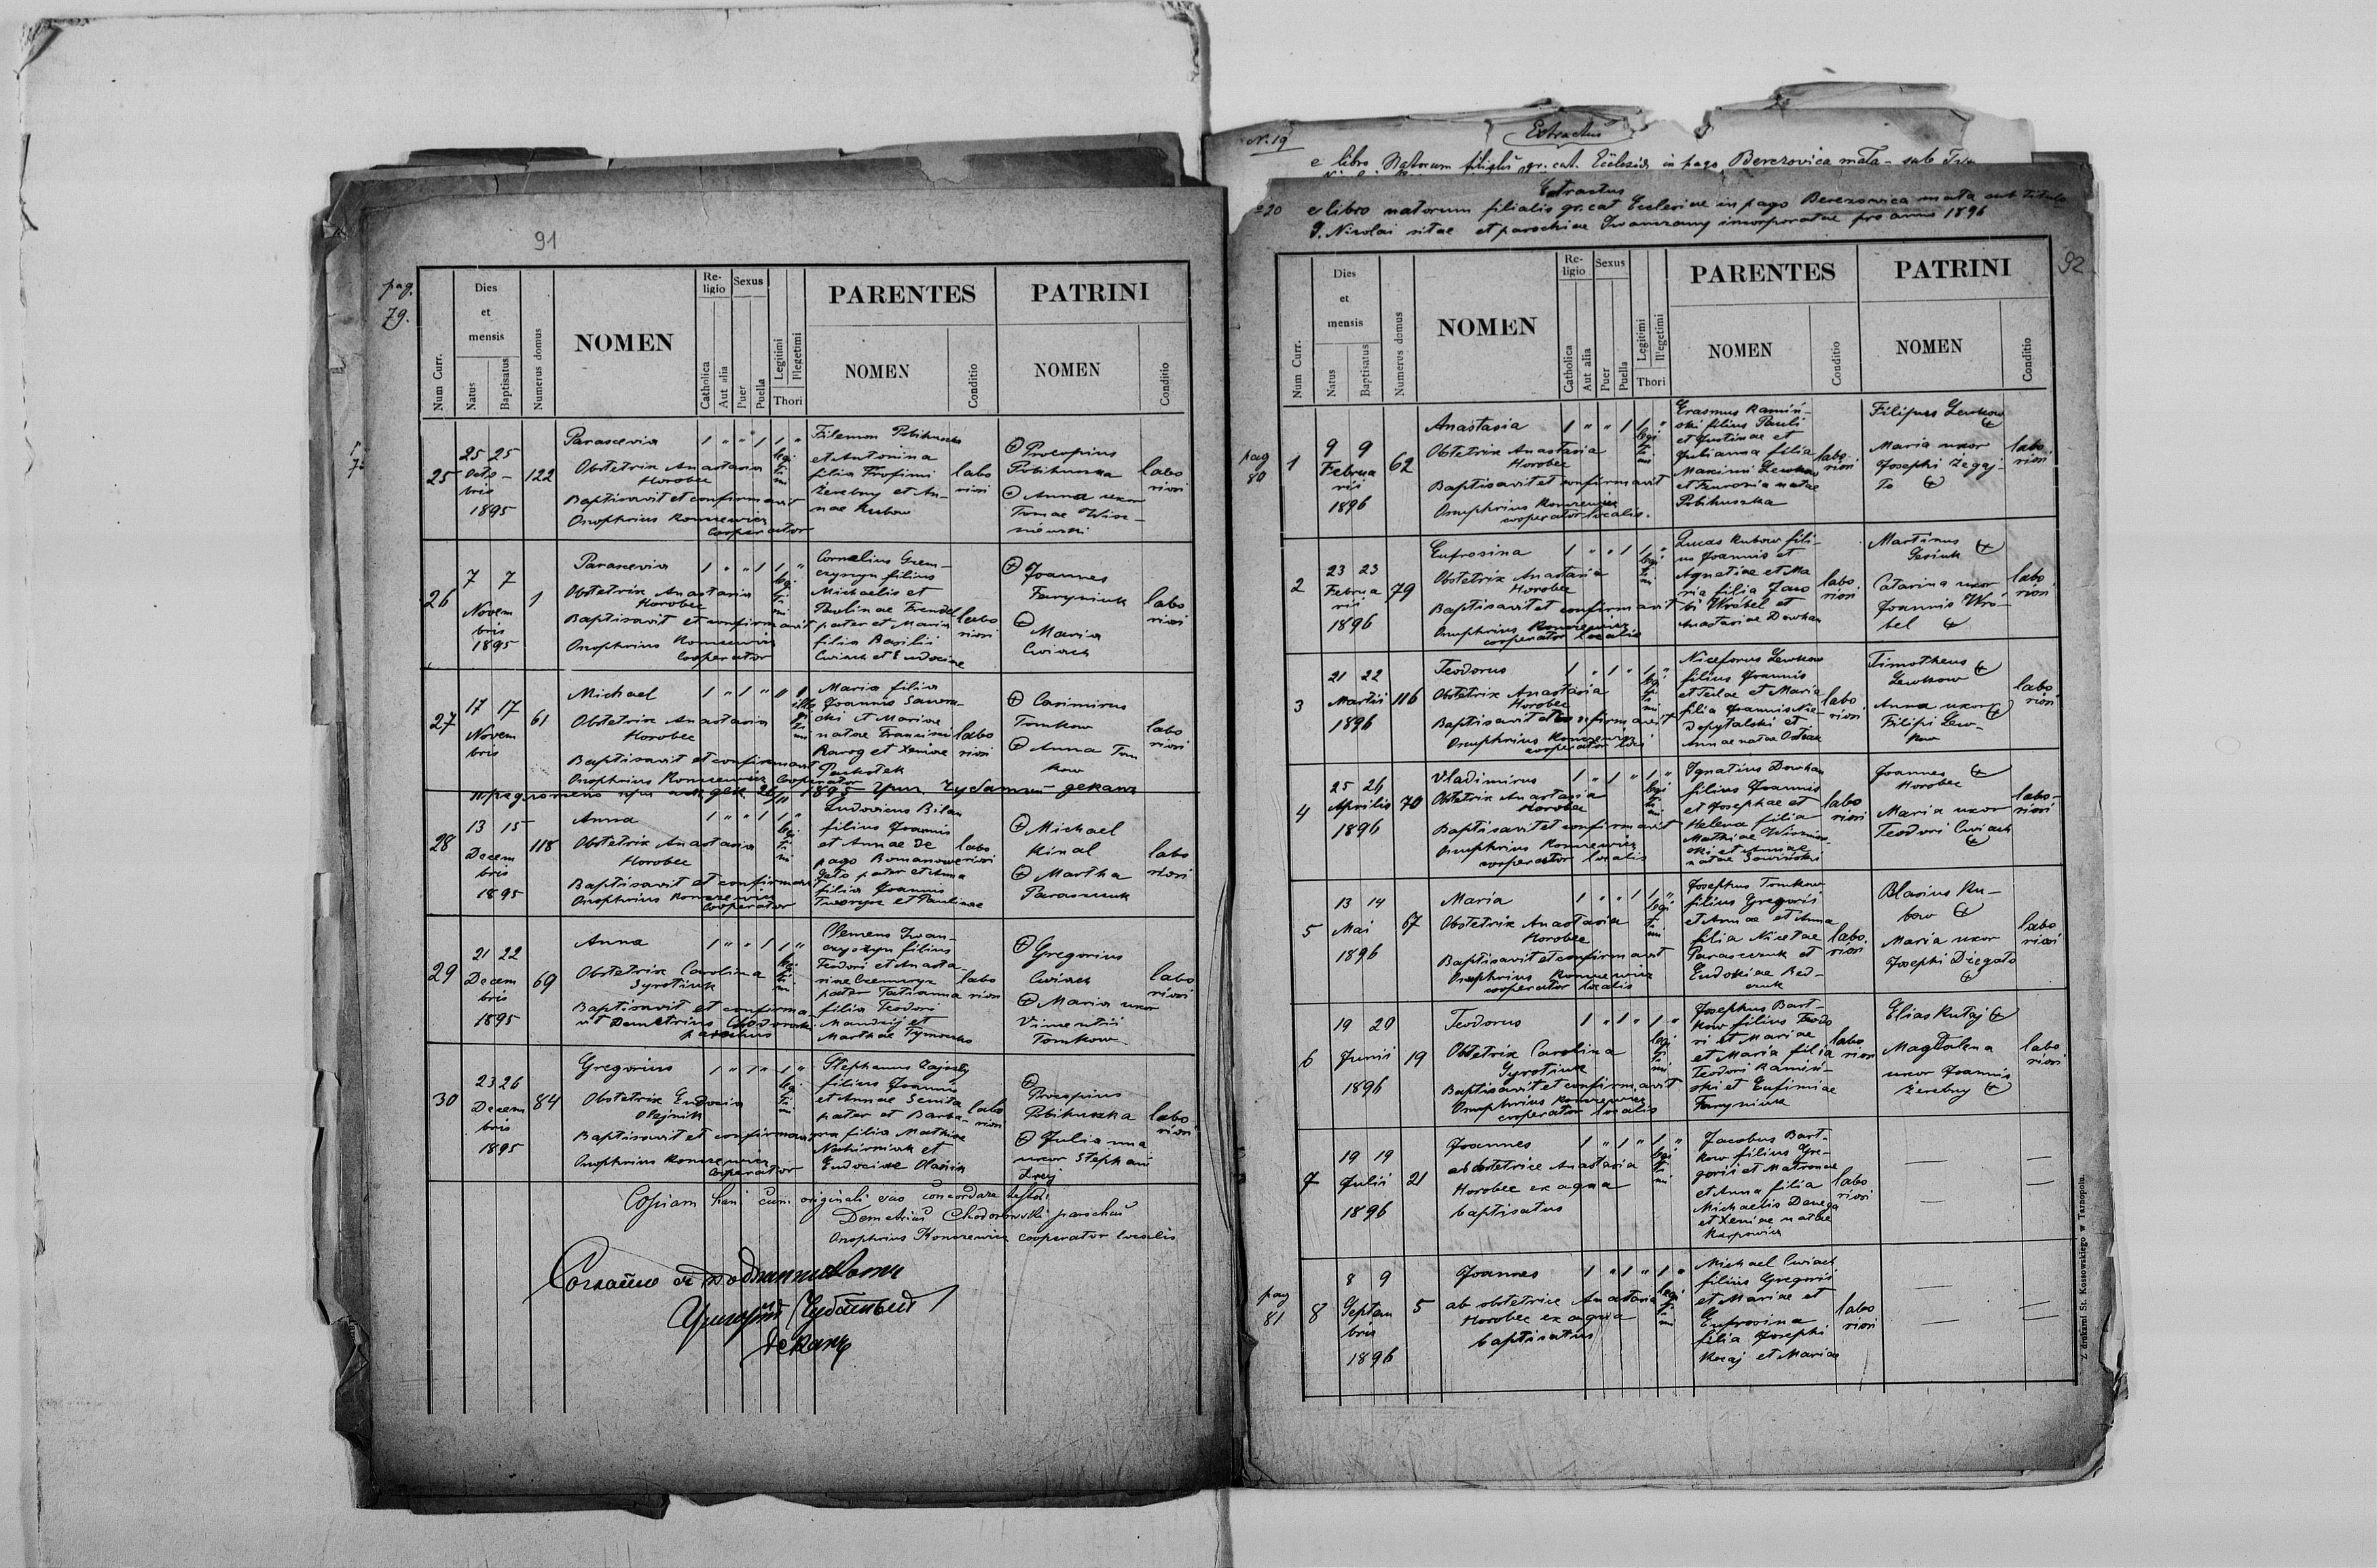 91
pag.
79.
Num Curr.
Dies
et
mensis
Natus
Baptisatus
Numerus domus
NOMEN
Re-
ligio
Catholica
Aut alia
Sexus
Puer
Puella
Legitimi
Illegetimi
Thori
PARENTES
NOMEN
Conditio
PATRINI
NOMEN
Conditio
25
25 25
Octo-
bris
1895
122
Parascevia
Obstetrix Anastasia
Horobec
Baptisavit et confirmavit
Onophrius Konczewicz
Cooperator
1 " " 1 1 "
legi
ti
mi
Filemon Pobihuszka
et Antonina
filia Trofimi
Żerebny et An-
nae Kubow
labo
riosi
Procopius
Pobihuszka
Anna uxor
Tomae Wisz-
niewski
labo
riosi
26
7 7
Novem
bris
1895
1
Parascevia
Obstetrix Anastasia
Horobec
Baptisavit et confirmavit
Onophrius Konczewicz
Cooperator
1 " " 1 1 "
legi
ti
mi
Cornelius Hrem-
czyszyn filius
Michaelis et
Paulinae
pater et Maria
filia Basilii
Cwiach et Eudociae
labo
riosi
Joannes
Faryniuk
Maria
Cwiach
labo
riosi
27
17 17
Novem
bris
61
Michael
Obstetrix Anastasia
Horobec
Baptisavit et confirmavit
Onophrius Konczewicz Cooperator
1 " 1 " " 1
ille
gi
ti
mi
Maria filia
Joannis
et Mariae
natae
Rarog et Xeniae
labo
riosi
Casimirus
Tomkow
Anna Tom
kow
labo
riosi
1895 декана
28
13 15
Decem
bris
1895
118
Anna
Obstetrix Anastasia
Horobec
Baptisavit et confirmavit
Onophrius Konczewicz
Cooperator
1 " " 1 1 "
legi
ti
mi
Ludovicus Bilan
filius Joannis
et Annae de
pago Romanowe
pater et Anna
filia Joannis
et Paulinae
labo
riosi
Michael
Kinal
Martha
Paraszczuk
labo
riosi
29
21 22
Decem
bris
1895
69
Anna
Obstetrix Carolina
Syrotiuk
Baptisavit et confirma-
vit Demetrius Chodorowski
parochus
1 " " 1 1 "
legi
ti
mi
Clemens Iwan-
czyszyn filius
Teodori et Anasta-
siae
pater Tatianna
filia Teodori
Mandzij et
Marthae
labo
riosi
Gregorius
Cwiach
Maria uxor
Vincentii
Tomkow
labo
riosi
30
23 26
Decem
bris
1895
84
Gregorius
Obstetrix Eudocia
Olejnik
Baptisavit et confirmavit
Onophrius Konczewicz
Cooperator
1 " 1 " 1 "
legi
ti
mi
Stephanus
filius Joannis
et Annae Senita
pater et Barba-
ra filia Mathiae
et
Eudociae
labo
riosi
Procopius
Pobihuszka
Julianna
uxor Stephani
labo
riosi
Copiam hanc cum originali suo concordare testor
Demetrius Chodorowski parochus
Onophrius Konczewicz cooperator localis
деканъ
N. 19
Extractus
e libro Natorum filialis gr. cat. Ecclesiae in pago Berezovica mała - sub
20
Extractus
e libro natorum filialis gr. cat Ecclesiae in pago Berezowica mała sub titulo
S. Nicolai sitae et parochiae Iwanczany incorporatae pro anno 1896
92.
Num Curr.
Dies
et
mensis
Natus
Baptisatus
Numerus domus
NOMEN
Re-
ligio
Catholica
Aut alia
Sexus
Puer
Puella
Legitimi
Illegetimi
Thori
PARENTES
NOMEN
Conditio
PATRINI
NOMEN
Conditio
pag
80
1
9 9
Februa
rii
1896
62
Anastasia
Obstetrix Anastasia
Horobec
Baptisavit et confirmavit
Onuphrius Konczewicz
cooperator localis.
1 " " 1 1 "
legi
ti
mi
Erasmus Kamiń-
ski filius Pauli
et Justinae et
Julianna filia
Maximi Lewkow
et natae
Pobihuszka
labo
riosi
Filipus Lewkow
Maria uxor
Josephi Żegaj-
To
labo
riosi
2
23 23
Februa
rii
1896
79
Eufrosina
Obstetrix Anastasia
Horobec
Baptisavit et confirmavit
Onuphrius Konczewicz
cooperator localis
1 " " 1 1 "
legi
ti
mi
Lucas Kubow fili-
us Joannis et
Agnetiae et Ma
ria filia Jaco
bi Wróbel et
Anastasiae Dowhan
labo
riosi
Martinus
Sesiuk
Catarina uxor
Joannis Wró-
bel
labo
riosi
3
21 22
Martii
1896
116
Teodorus
Obstetrix Anastasia
Horobec
Baptisavit et confirmavit
Onuphrius Konczewicz
cooperator loci
1 " 1 " 1 "
legi
ti
mi
Niceforus Lewkow
filius Joannis
et Teclae et Maria
filia Joannis Nie-
dopytalski et
Annae natae
labo
riosi
Timotheus
Lewkow
Anna uxor
Filipi Lew-
kow
labo
riosi
4
25 26
Aprilis
1896
70
Vladimirus
Obstetrix Anastasia
Horobec
Baptisavit et confirmavit
Onuphrius Konczewicz
cooperator localis
1 " 1 " 1 "
legi
ti
mi
Ignatius Dowhan
filius Joannis
et Josephae et
Helena filia
Mathiae Wiśniow-
ski et Annae
natae Sowiński
labo
riosi
Joannes
Horobec
Maria uxor
Teodori Cwiach
labo-
riosi
5
13 14
Mai
1896
67
Maria
Obstetrix Anastasia
Horobec
Baptisavit et confirmavit
Onuphrius Konczewicz
cooperator localis
1 " " 1 1 "
legi
ti
mi
Josephus Tomkow
filius Gregorii
et Annae et Anna
filia Nicetae
Paraszczuk et
Eudokiae Bed-
labo
riosi
Blasius Ku-
bow
Maria uxor
Josephi Dzegało
labo
riosi
6
19 20
Junii
1896
19
Teodorus
Obstetrix Carolina
Syrotiuk
Baptisavit et confirmavit
Onuphrius Konczewicz
cooperator localis
1 " 1 " 1 "
legi
ti
mi
Josephus Bart-
kow filius Teodo
ri et Mariae
et Maria filia
Teodori Kamiń-
ski et Eufimiae
Faryniuk
labo
riosi
Elias Kutaj
Magdalena
uxor Joannis
Żerebny
labo
riosi
7
19 19
Julii
1896
21
Joannes
ab obstetrice Anastasia
Horobec ex aqua
baptisatus
1 " 1 " 1 "
legi
ti
mi
Jacobus Bart-
kow filius Gre-
gorii et Matronae
et Anna filia
Michaelis Danega
et Xeniae natae
Karpowicz
labo
riosi
pag
81
8
8 9
Septem
bris
1896
5
Joannes
ab obstetrice Anastasia
Horobec ex aqua
baptisatus
1 " 1 " 1 "
legi
ti
mi
Michael Cwiach
filius Gregorii
et Mariae et
Eufrosina
filia Josephi
et Mariae
labo
riosi
Z drukarni St. Kossowskiego w Tarnopolu.